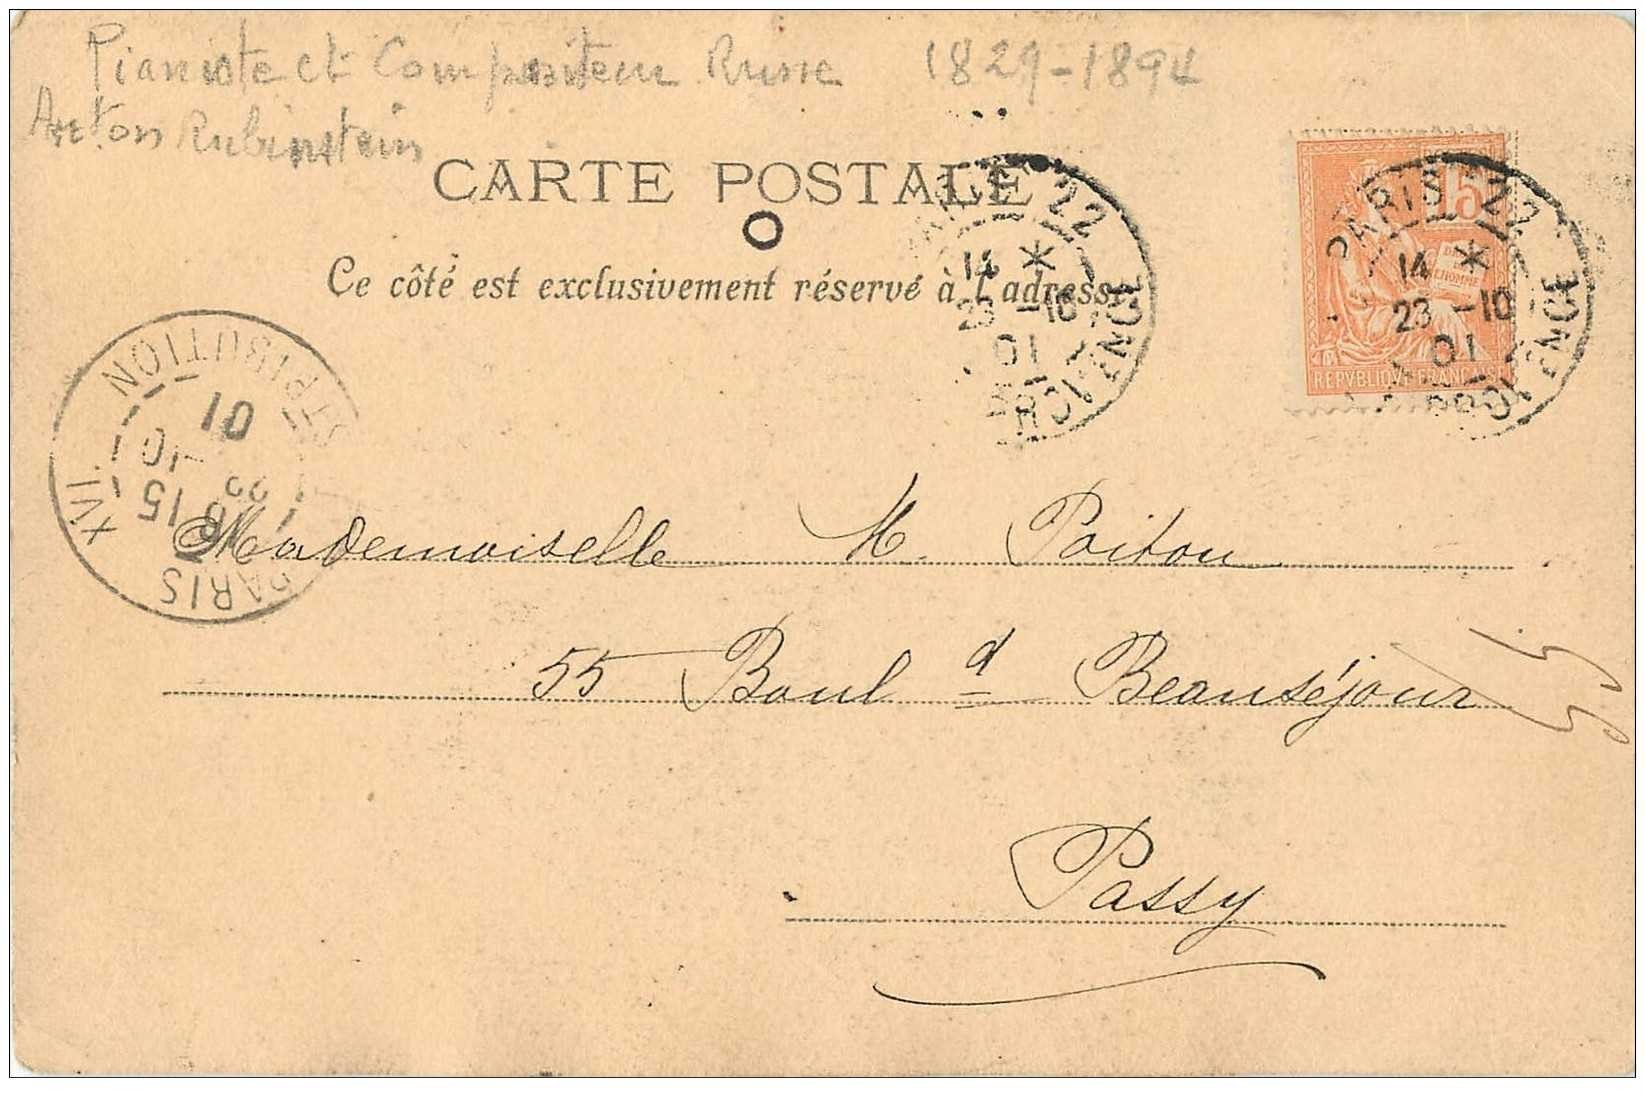 Pianiste et Compositeur Russe 1829-1894
Anton Rubinstein
CARTE POSTALE
Ce côté est exclusivement réservé à l'adresse
PARIS 22
14 *
23 -10
01
R. DE PROVENCE
PARIS 22
14 *
23 -10
01
PROVENCE
15
DROITS DE L'HOMME
REPVBLIQVE FRANÇAISE
PARIS XVI
DISTRIBUTION
15
10
01
Mademoiselle M. Poitou
55 Boul d Beauséjour
Passy